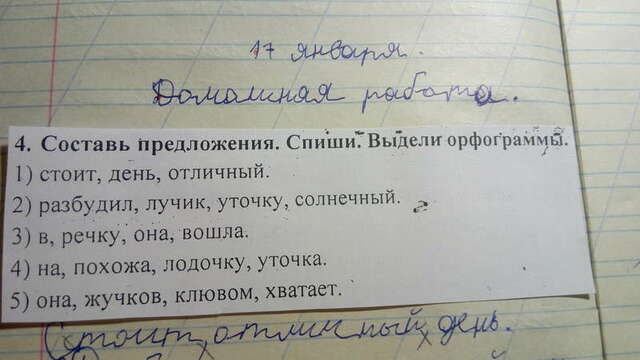 17 января.
Домашняя работа.
4. Составь предложения. Спиши. Выдели орфограммы.
1) стоит, день, отличный.
2) разбудил, лучик, уточку, солнечный.
3) в, речку, она, вошла.
4) на, похожа, лодочку, уточка.
5) она, жучков, клювом, хватает.
Стоит отличный день.